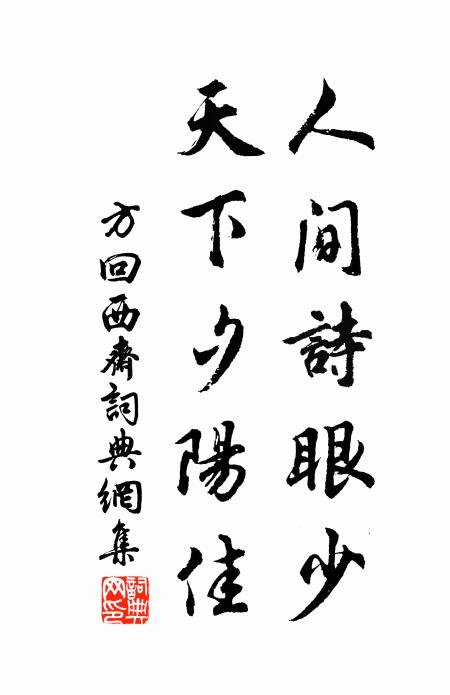 人间詩眼少
天下夕陽佳
方回西齋詞典網集
詞典網印